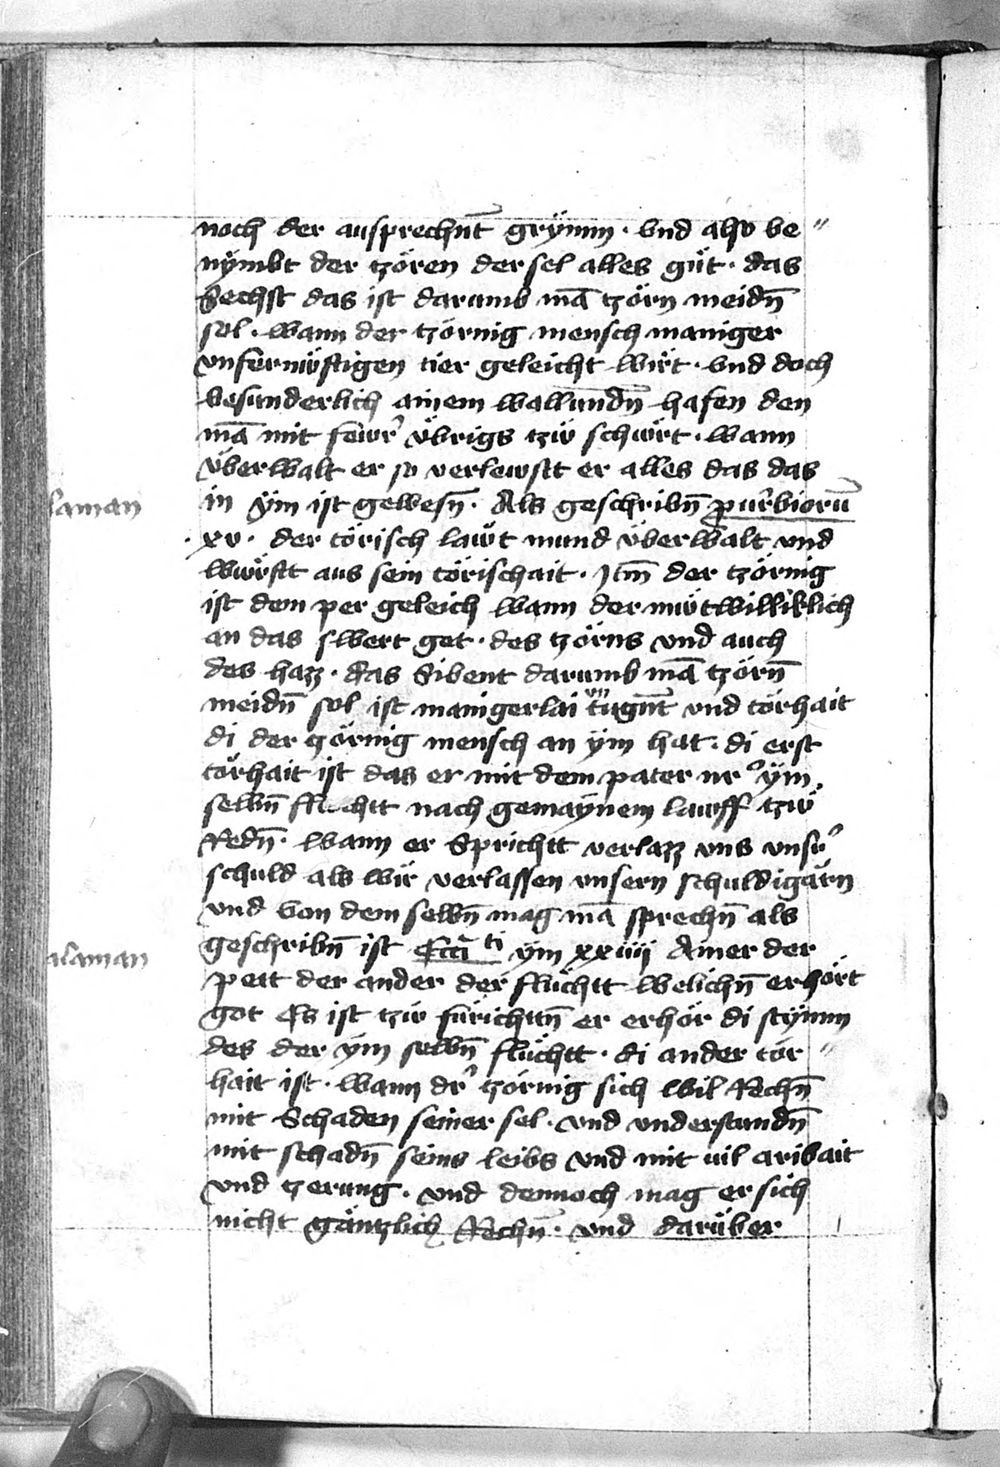 noch der ausprechn̄t grÿmm · vnd also be〃
nÿmbt der tzören der sel alles gůt · das
Sechst das ist darumb mā tzörn meidn̄
sol · wann der tzörnig mensch maniger
vnfernu̍ftigen tier geleicht wirt · vnd doch
besunderlich ainem wallundn̄ hafen den
mā mit fewr̉ u̍brigs tzu̍ schu̍rt · wann
u̍berwalt er so verlewstt er alles das das
in ÿm ist gewesn̄ · Als geschribn̄ puerbiorū
salaman
· xv · der törisch lawt mund u̍berwalt vnd
wu̍rftt aus sein törischait · Jtm̄ der tzörnig
ist dem per geleich wann der mu̍twilliklich
an das swert get · des tzörns vnd auch
des hazz · das Sibent darumb mā tzörn̄
meidn̄ sol ist manigerlai vntugn̄t vnd törhait
di der zörnig mensch an ÿm hat · di erst
törhait ist das er mit dem pater nr̉ ÿm
selbn̄ fluchtt nach gemaÿnem lawff tzu̍
Redn̄ · wann er Sprichtt verlazz vns vnsr̉
schuld als wir verlassen vnsern schuldigärn
vnd von dem selbn̄ mag mā sprechn̄ als
geschribn̄ ist Ecciti ÿm xxiiij Ainer der
salaman
pett der ander der flu̍chtt welichn̄ erhört
got Es ist tzu̍ fu̍richttn̄ er erhör di stÿmm
des der ÿm selbn̄ flu̍chtt · di ander tör〃
hait ist · wann dr̉ tzörnig sich wil Rechn̄
mit Schaden seiner sel · vnd vnderstundn̄
mit schadn̄ seins leibs vnd mit vil aribait
vnd tzerung · vnd dennoch mag er sich
nicht gäntzlich Rechn̄ · vnd daru̍ber